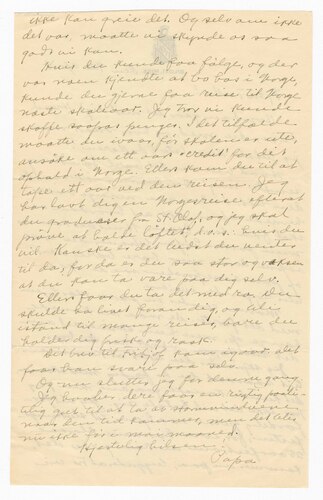 ikke kan greie det. Og selv om ikke
det var, maatte vi skynde os saa
godt vi kan.
Hvis du kunde faa følge, og der
var noen kjendte at bo hos i Norge,
kunde du gjerne faa reise til Norge
næste skoleaar. Jeg tror vi kunde
skaffe saapas penger. I det tilfælde
maatte du vaar, før skolen er ute,
ansøke om ett aars "credit" for dit
ophold i Norge. Ellers kom du til at
tape ett aar ved den reisen. Jeg
har lovt dig en Norgesreise efterat
du graduerer fra St. Olaf, og jeg skal
prøve at holde løftet, d.v.s. hvis du
vil. Kanske er det bedst du venter
til da, for da er du saa stor og voksen
at du kan ta vare paa dig selv.
Ellers faar du ta det med ro. Du
skulde ha livet foran dig, og bli
istand til mange reiser, bare du
holder dig frisk og rask.
Det brev til
faar han svare paa selv.
Og nu slutter jeg for denne gang.
Jeg ønsker dere faar en rigtig
jul til at ta at
naar den tid kommer, men det blir
nu ikke før i mai maaned.
Hjertelig hilsen,
Papa